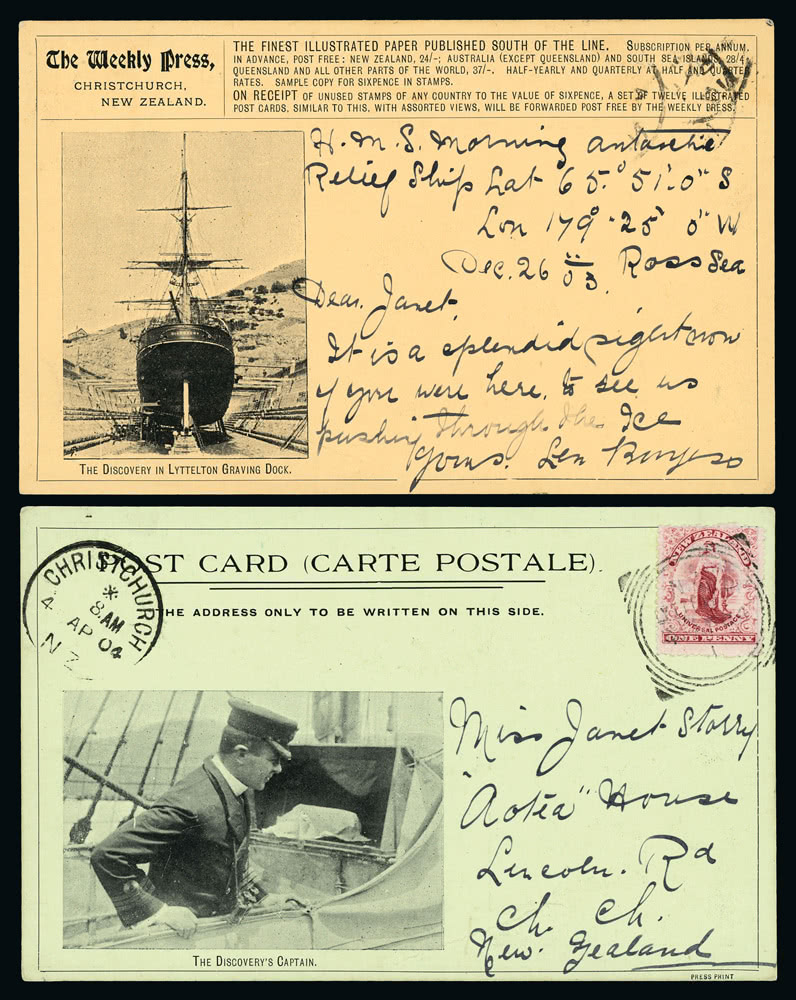 The Weekly Press,
CHRISTCHURCH,
NEW ZEALAND.
THE FINEST ILLUSTRATED PAPER PUBLISHED SOUTH OF THE LINE. SUBSCRIPTION PER ANNUM.
IN ADVANCE, POST FREE: NEW ZEALAND, 24/-; AUSTRALIA (EXCEPT QUEENSLAND) AND SOUTH SEA ISLANDS, 28/4;
QUEENSLAND AND ALL OTHER PARTS OF THE WORLD, 37/-. HALF-YEARLY AND QUARTERLY AT HALF AND QUARTER
RATES. SAMPLE COPY FOR SIXPENCE IN STAMPS.
ON RECEIPT OF UNUSED STAMPS OF ANY COUNTRY TO THE VALUE OF SIXPENCE, A SET OF TWELVE ILLUSTRATED
POST CARDS, SIMILAR TO THIS, WITH ASSORTED VIEWS, WILL BE FORWARDED POST FREE BY THE WEEKLY PRESS.
H.M.S. Morning Antarctic
Relief Ship Lat 65.° 51'. 0" S
Lon 179° 25' 0" W
Dec. 26 03. Ross Sea
Dear Janet,
It is a splendid sight now
if you were here, to see us
pushing through the Ice
yours. Len Burgess
THE DISCOVERY IN LYTTELTON GRAVING DOCK.
POST CARD (CARTE POSTALE).
THE ADDRESS ONLY TO BE WRITTEN ON THIS SIDE.
CHRISTCHURCH
4
8 AM
AP 04
N Z
NEW ZEALAND
UNIVERSAL POSTAGE
ONE PENNY
Miss Janet Storry
"Aotea" House
Lincoln. Rd
Ch. Ch.
New. Zealand
THE DISCOVERY'S CAPTAIN.
PRESS PRINT